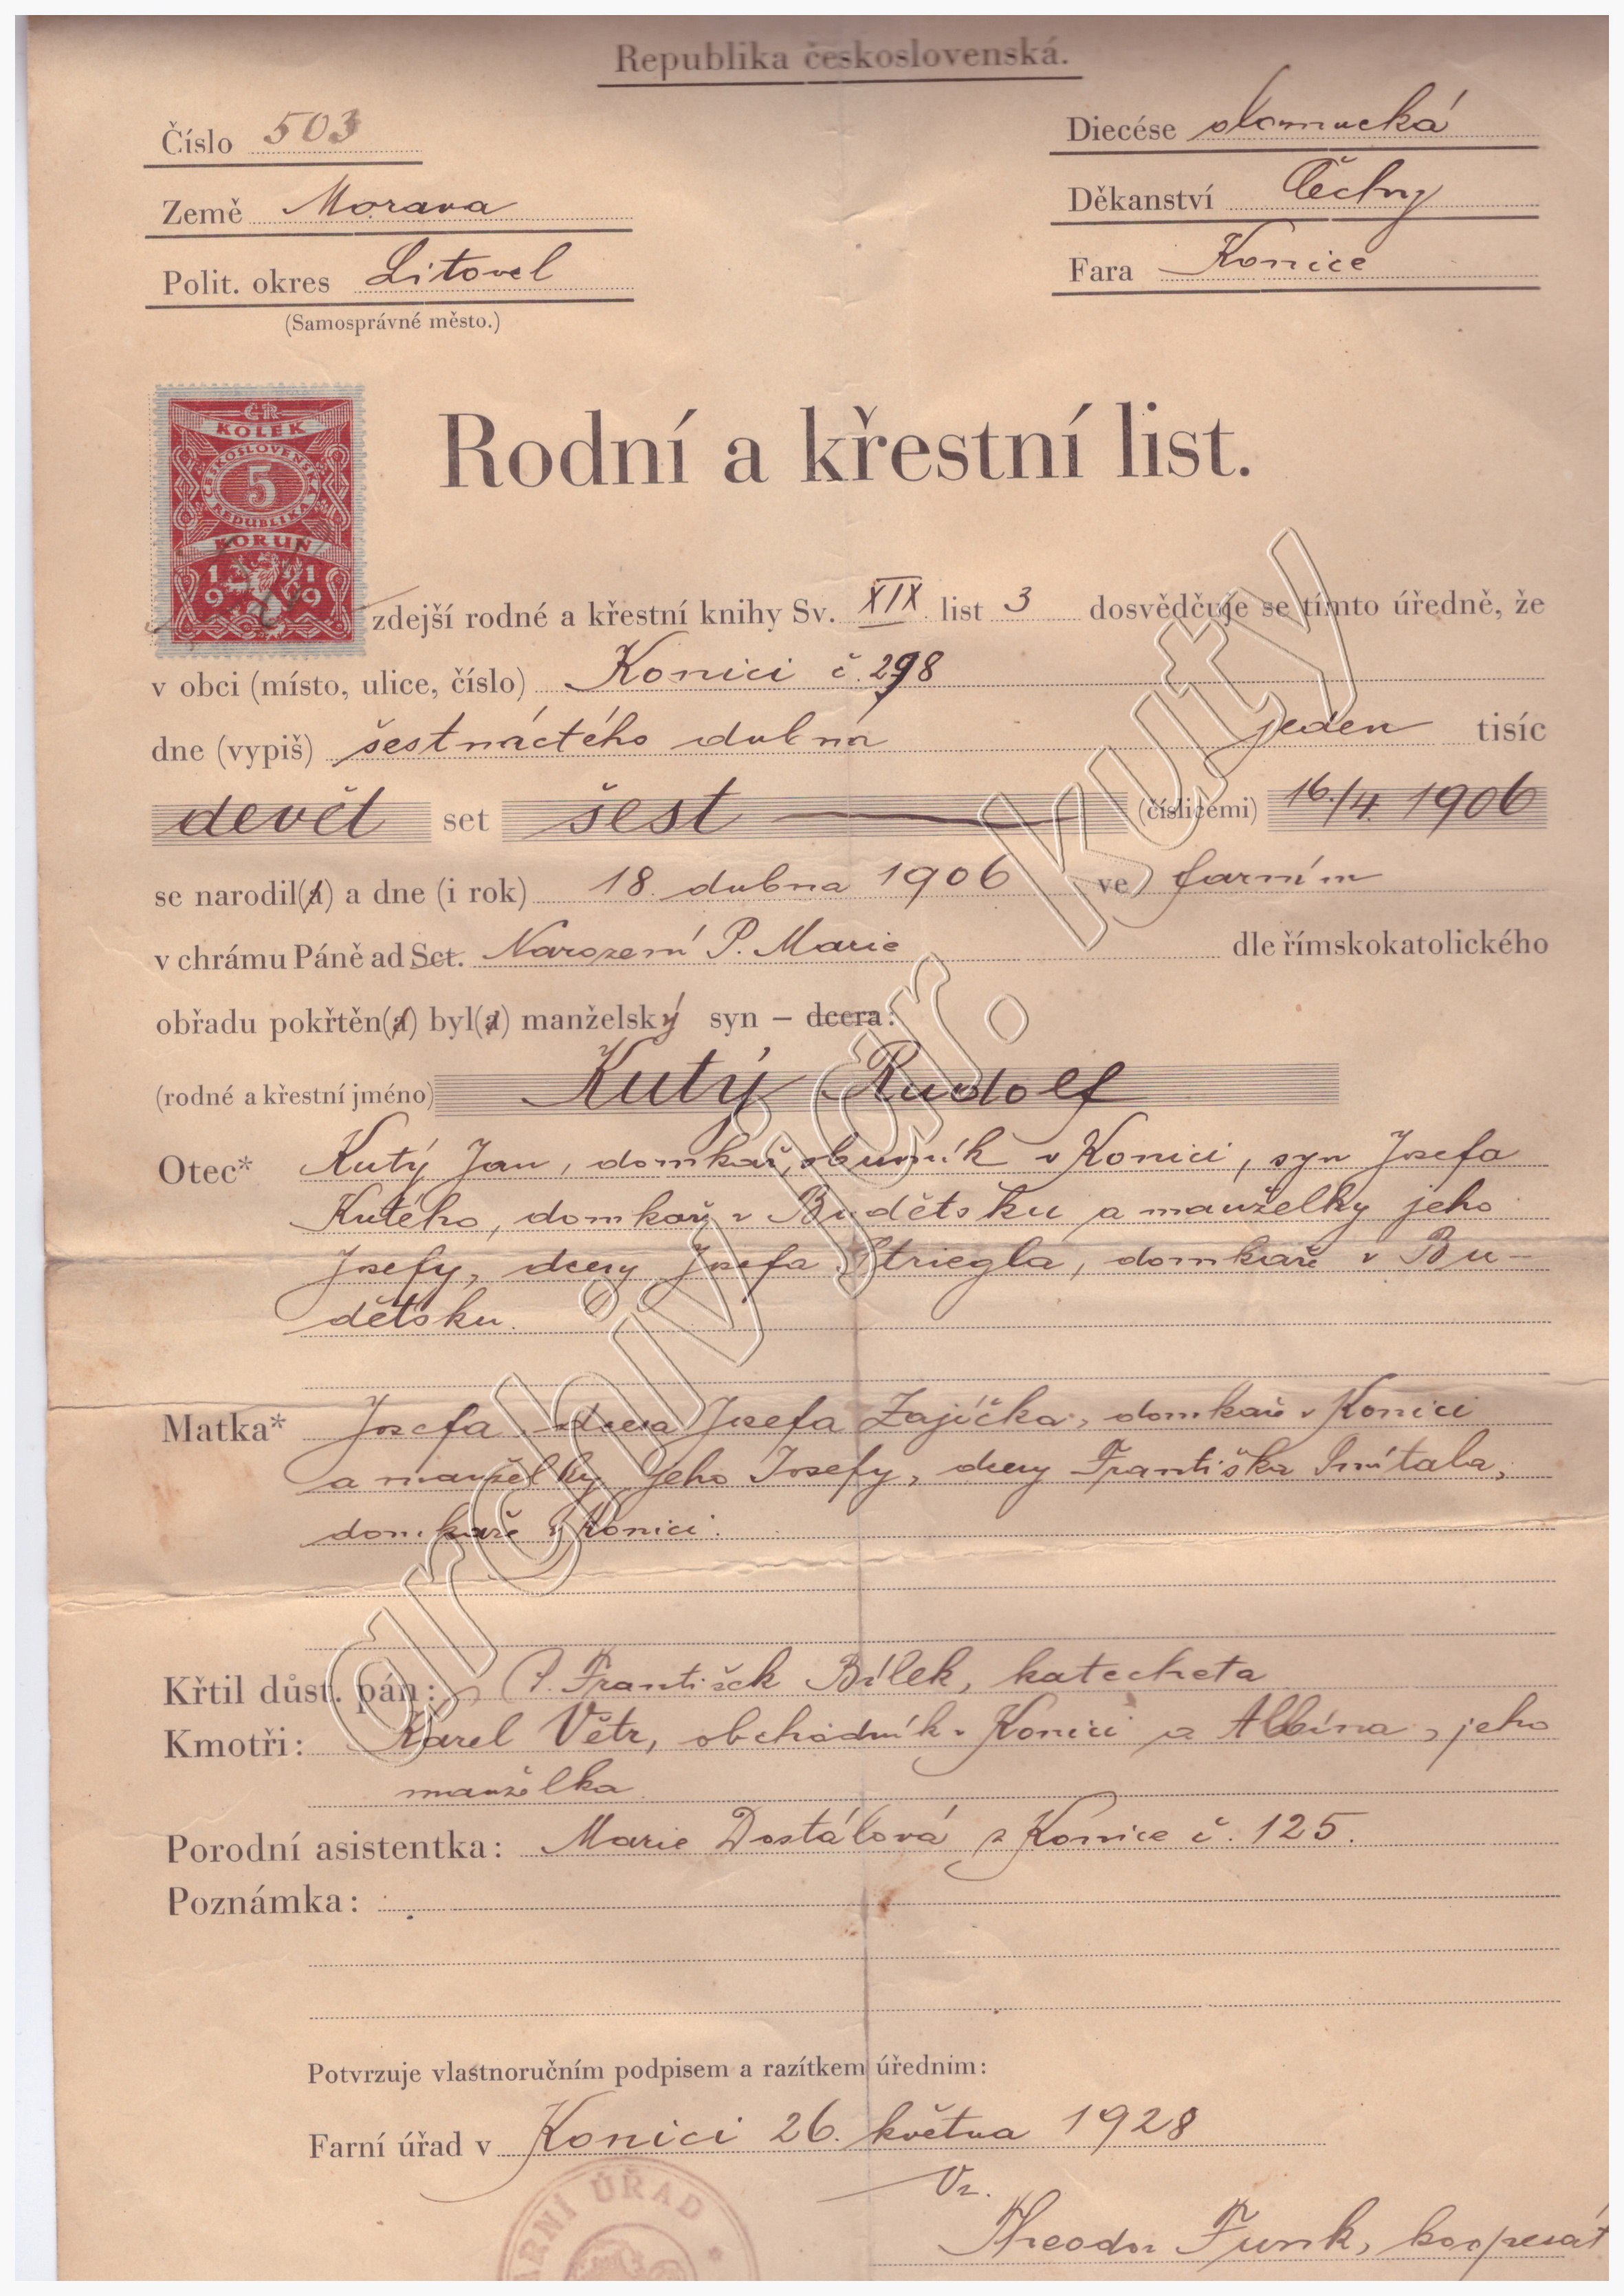 Republika československá.
Číslo 503
Diecése olomucká
Země Morava
Děkanství Čechy
Polit. okres Litovel
Fara Konice
(Samosprávné město.)
ČR
KOLEK
ČESKOSLOVENSKÁ
5
REPUBLIKA
KORUN
1919
Rodní a křestní list.
zdejší rodné a křestní knihy Sv. XIX. list 3 dosvědčuje se tímto úředně, že
v obci (místo, ulice, číslo) Konici č. 298
dne (vypiš) šestnáctého dubna jeden tisíc
devět set šest (číslicemi) 16./4. 1906
se narodil(a) a dne (i rok) 18. dubna 1906 ve farním
v chrámu Páně ad Sct. Narození P. Marie dle římskokatolického
obřadu pokřtěn(a) byl(a) manželský syn – dcera:
(rodné a křestní jméno) Kutý Rudolf
Otec* Kutý Jan, domkař, obuvník v Konici, syn Josefa
Kutého, domkaře v Budětsku a manželky jeho
Josefy, dcery Josefa Striegla, domkaře v Bu-
dětsku.
Matka* Josefa, dcera Josefa Zajíčka, domkaře v Konici
a manželky jeho Josefy, dcery Františka
domkaře v Konici.
Křtil důst. pán: P. František Bílek, katecheta
Kmotři: Karel Vétr, obchodník v Konici a Albína, jeho
manželka
Porodní asistentka: Marie Dostálová z Konice č. 125.
Poznámka:
Potvrzuje vlastnoručním podpisem a razítkem úředním:
Farní úřad v Konici 26. května 1928
Vz.
Theodor Funk, kooperát
FARNÍ ÚŘAD
archiv jar. Kutý